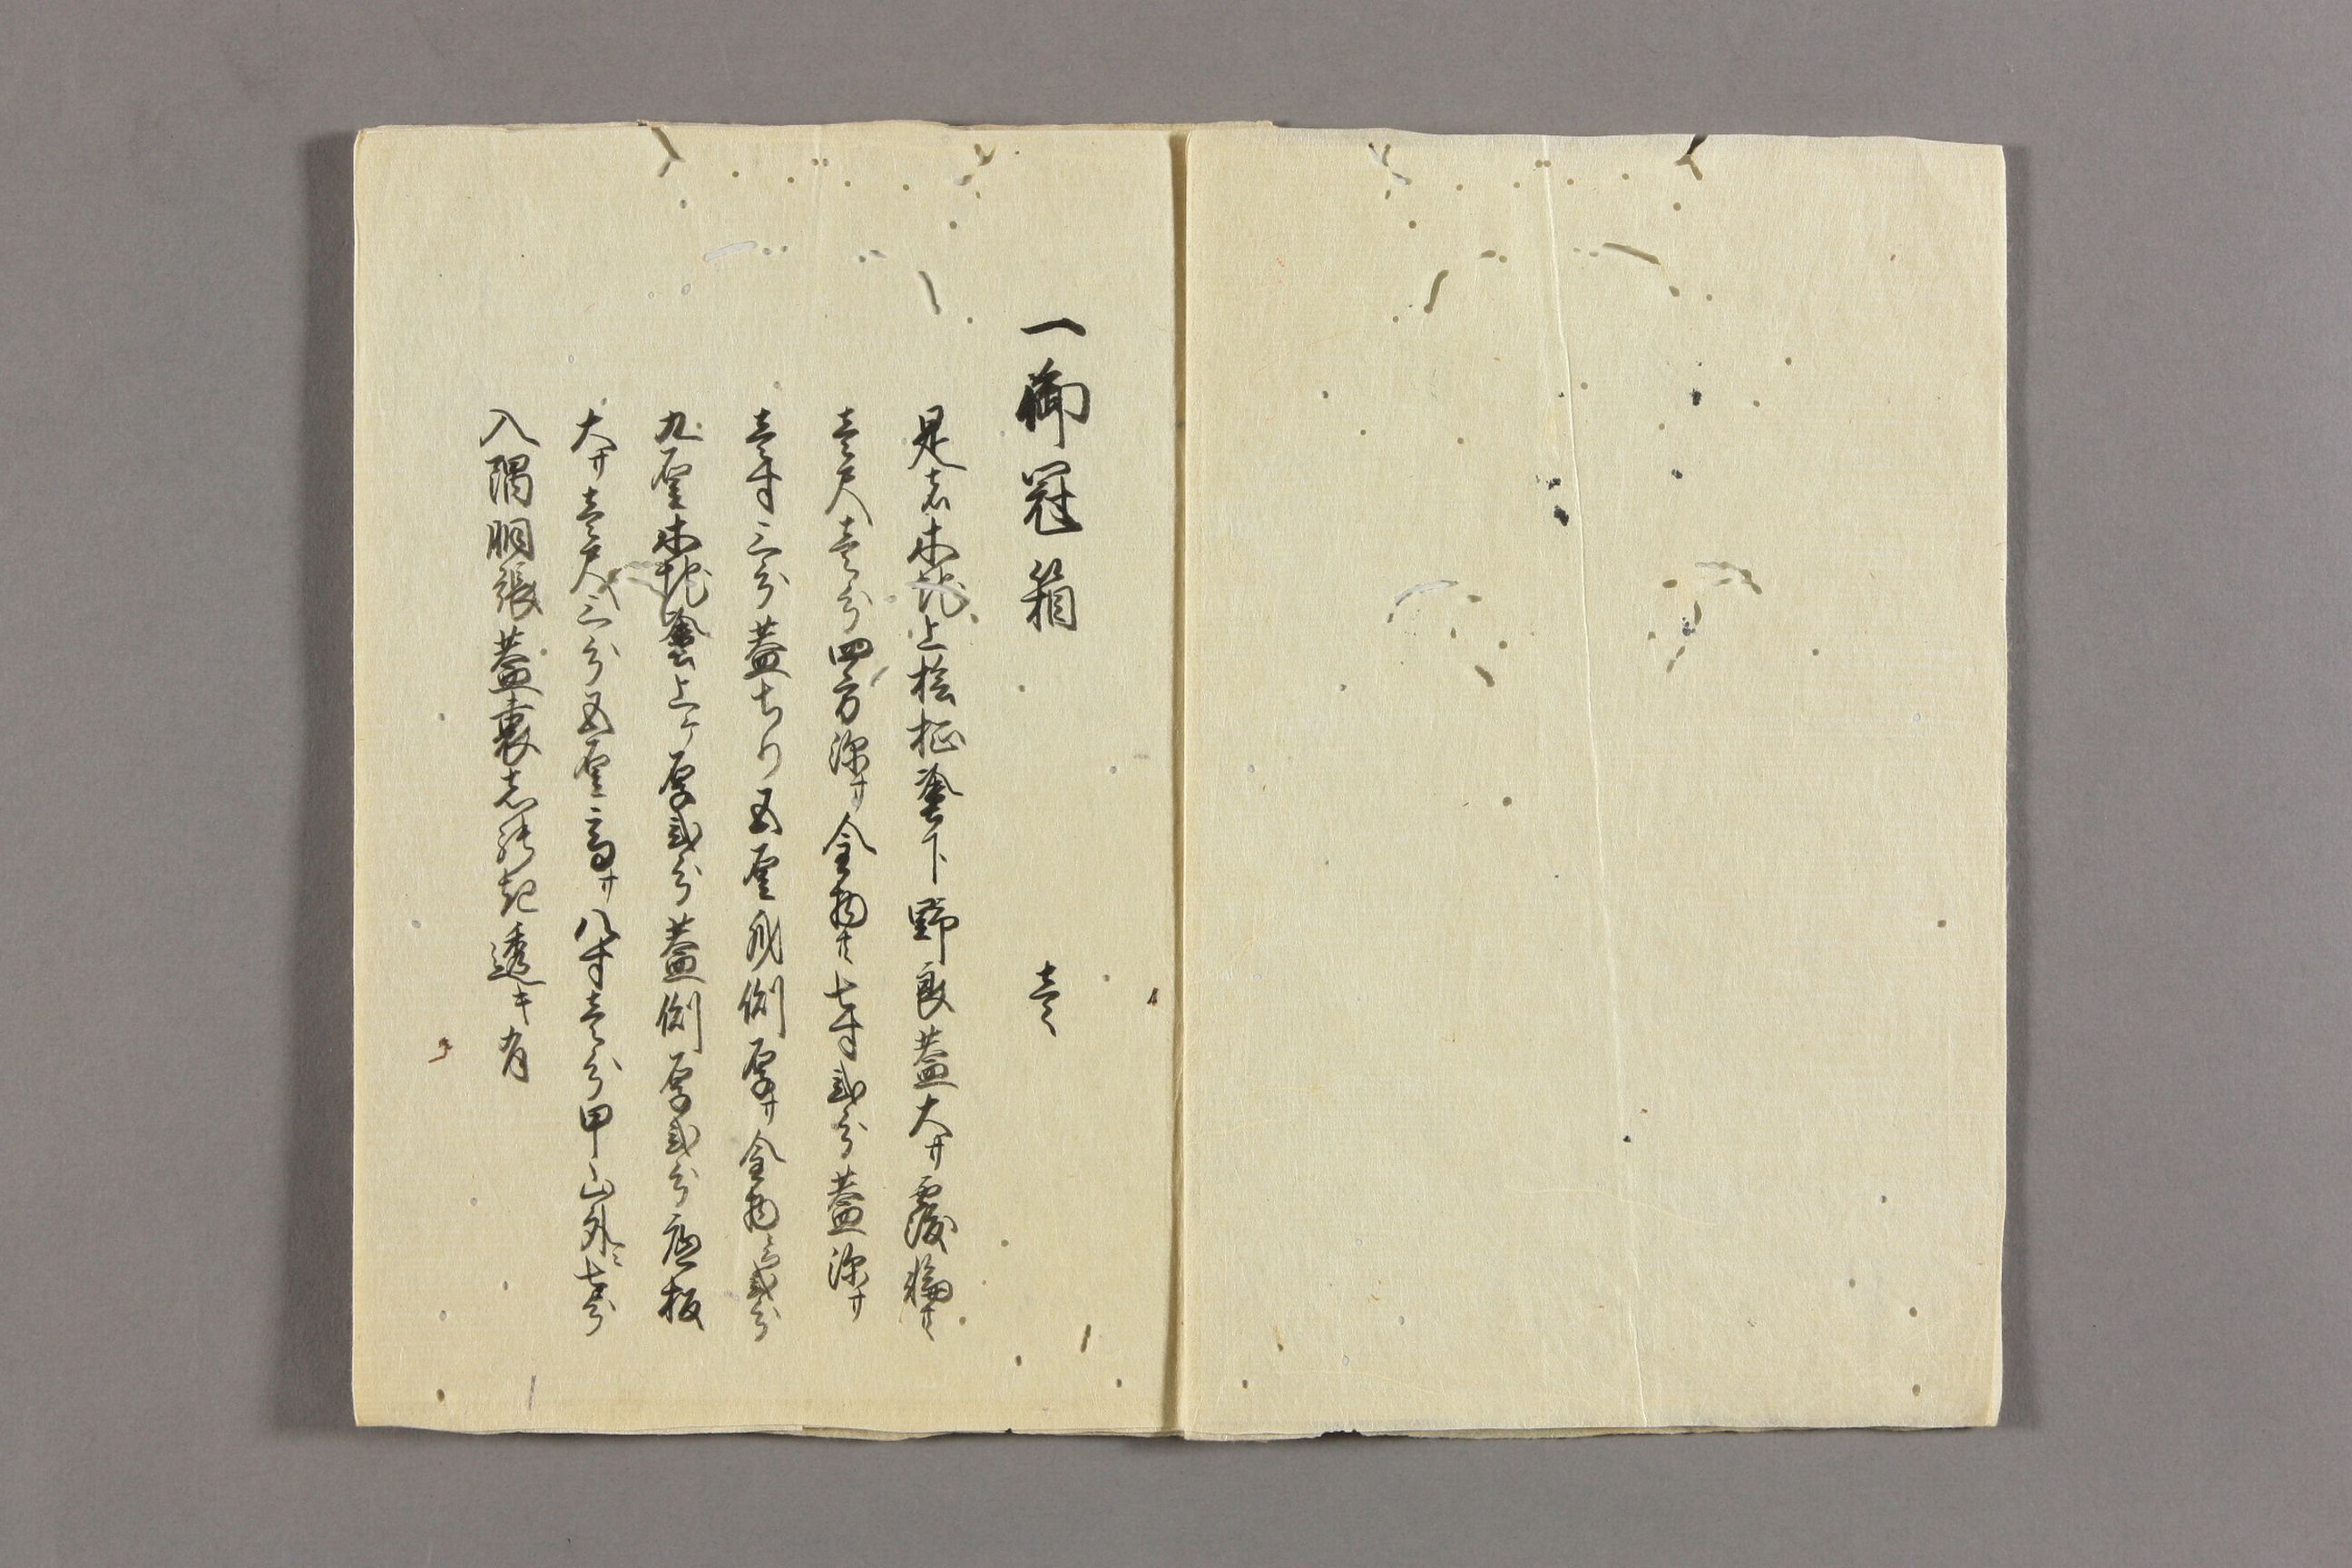 一御冠箱　壱
是者木地上桧柾塗下野良蓋大サ覆輪廿
壱尺壱分四方深サ金物廿七寸弐分蓋深サ
壱寸三分蓋ちり五厘身側厚サ金物弐分
九厘木地塗上ケ厚弐分蓋側厚弐分底板
大サ壱尺三分五厘高サ八寸壱分甲山外ニ七分
入隅胴張蓋裏透キ有